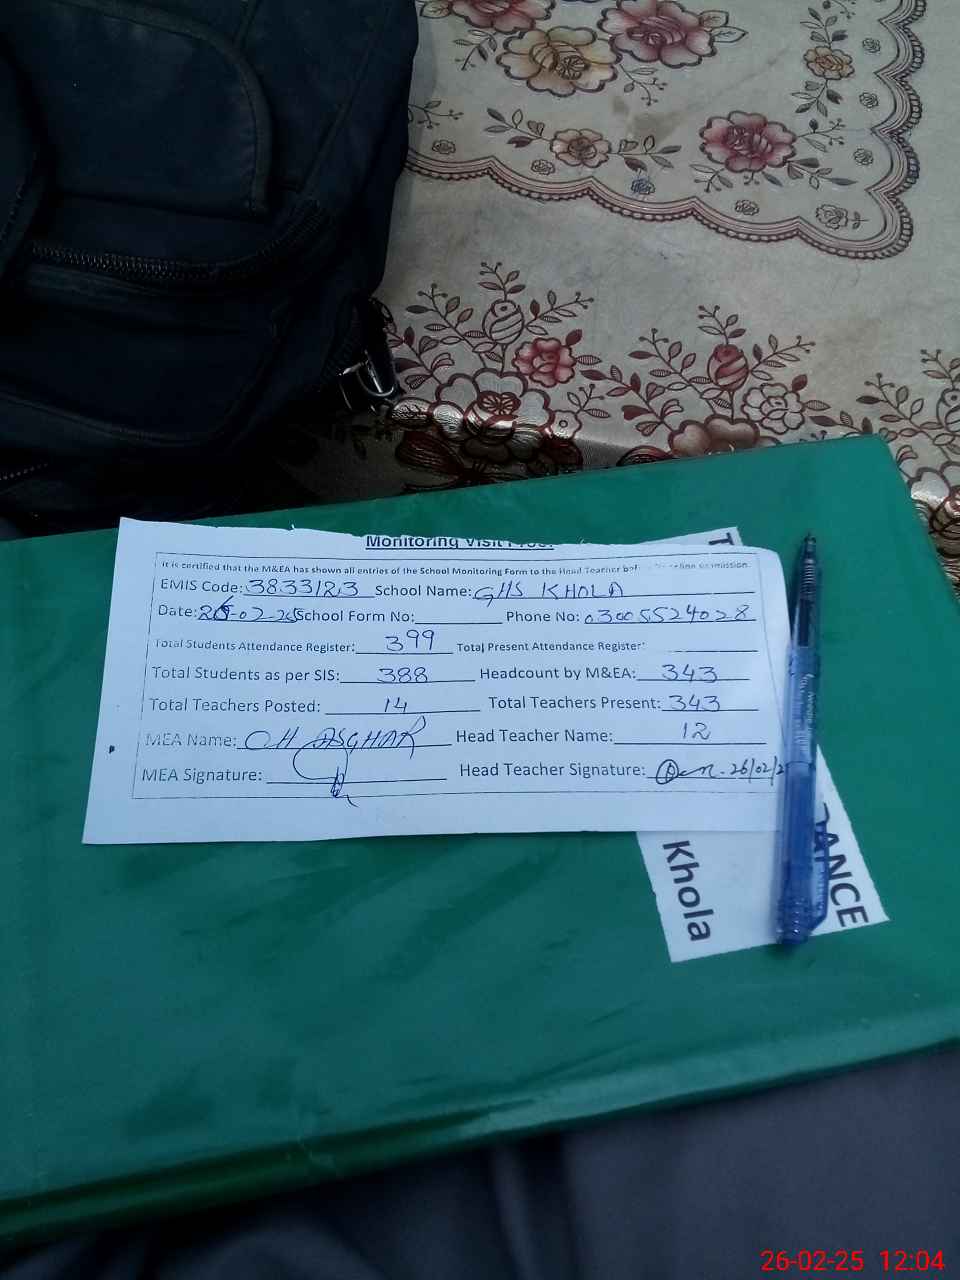 Monitoring Visit Proof
It is certified that the M&EA has shown all entries of the School Monitoring Form to the Head Teacher before online submission.
EMIS Code: 38331213 School Name: GHS KHOLA
Date: 26-02-25 School Form No: Phone No: 03005524028
Total Students Attendance Register: 399 Total Present Attendance Register:
Total Students as per SIS: 388 Headcount by M&EA: 343
Total Teachers Posted: 14 Total Teachers Present: 343
MEA Name: CH ASGHAR Head Teacher Name: 12
MEA Signature: Head Teacher Signature: 26/02/2
T
ANCE
Khola
26-02-25 12:04